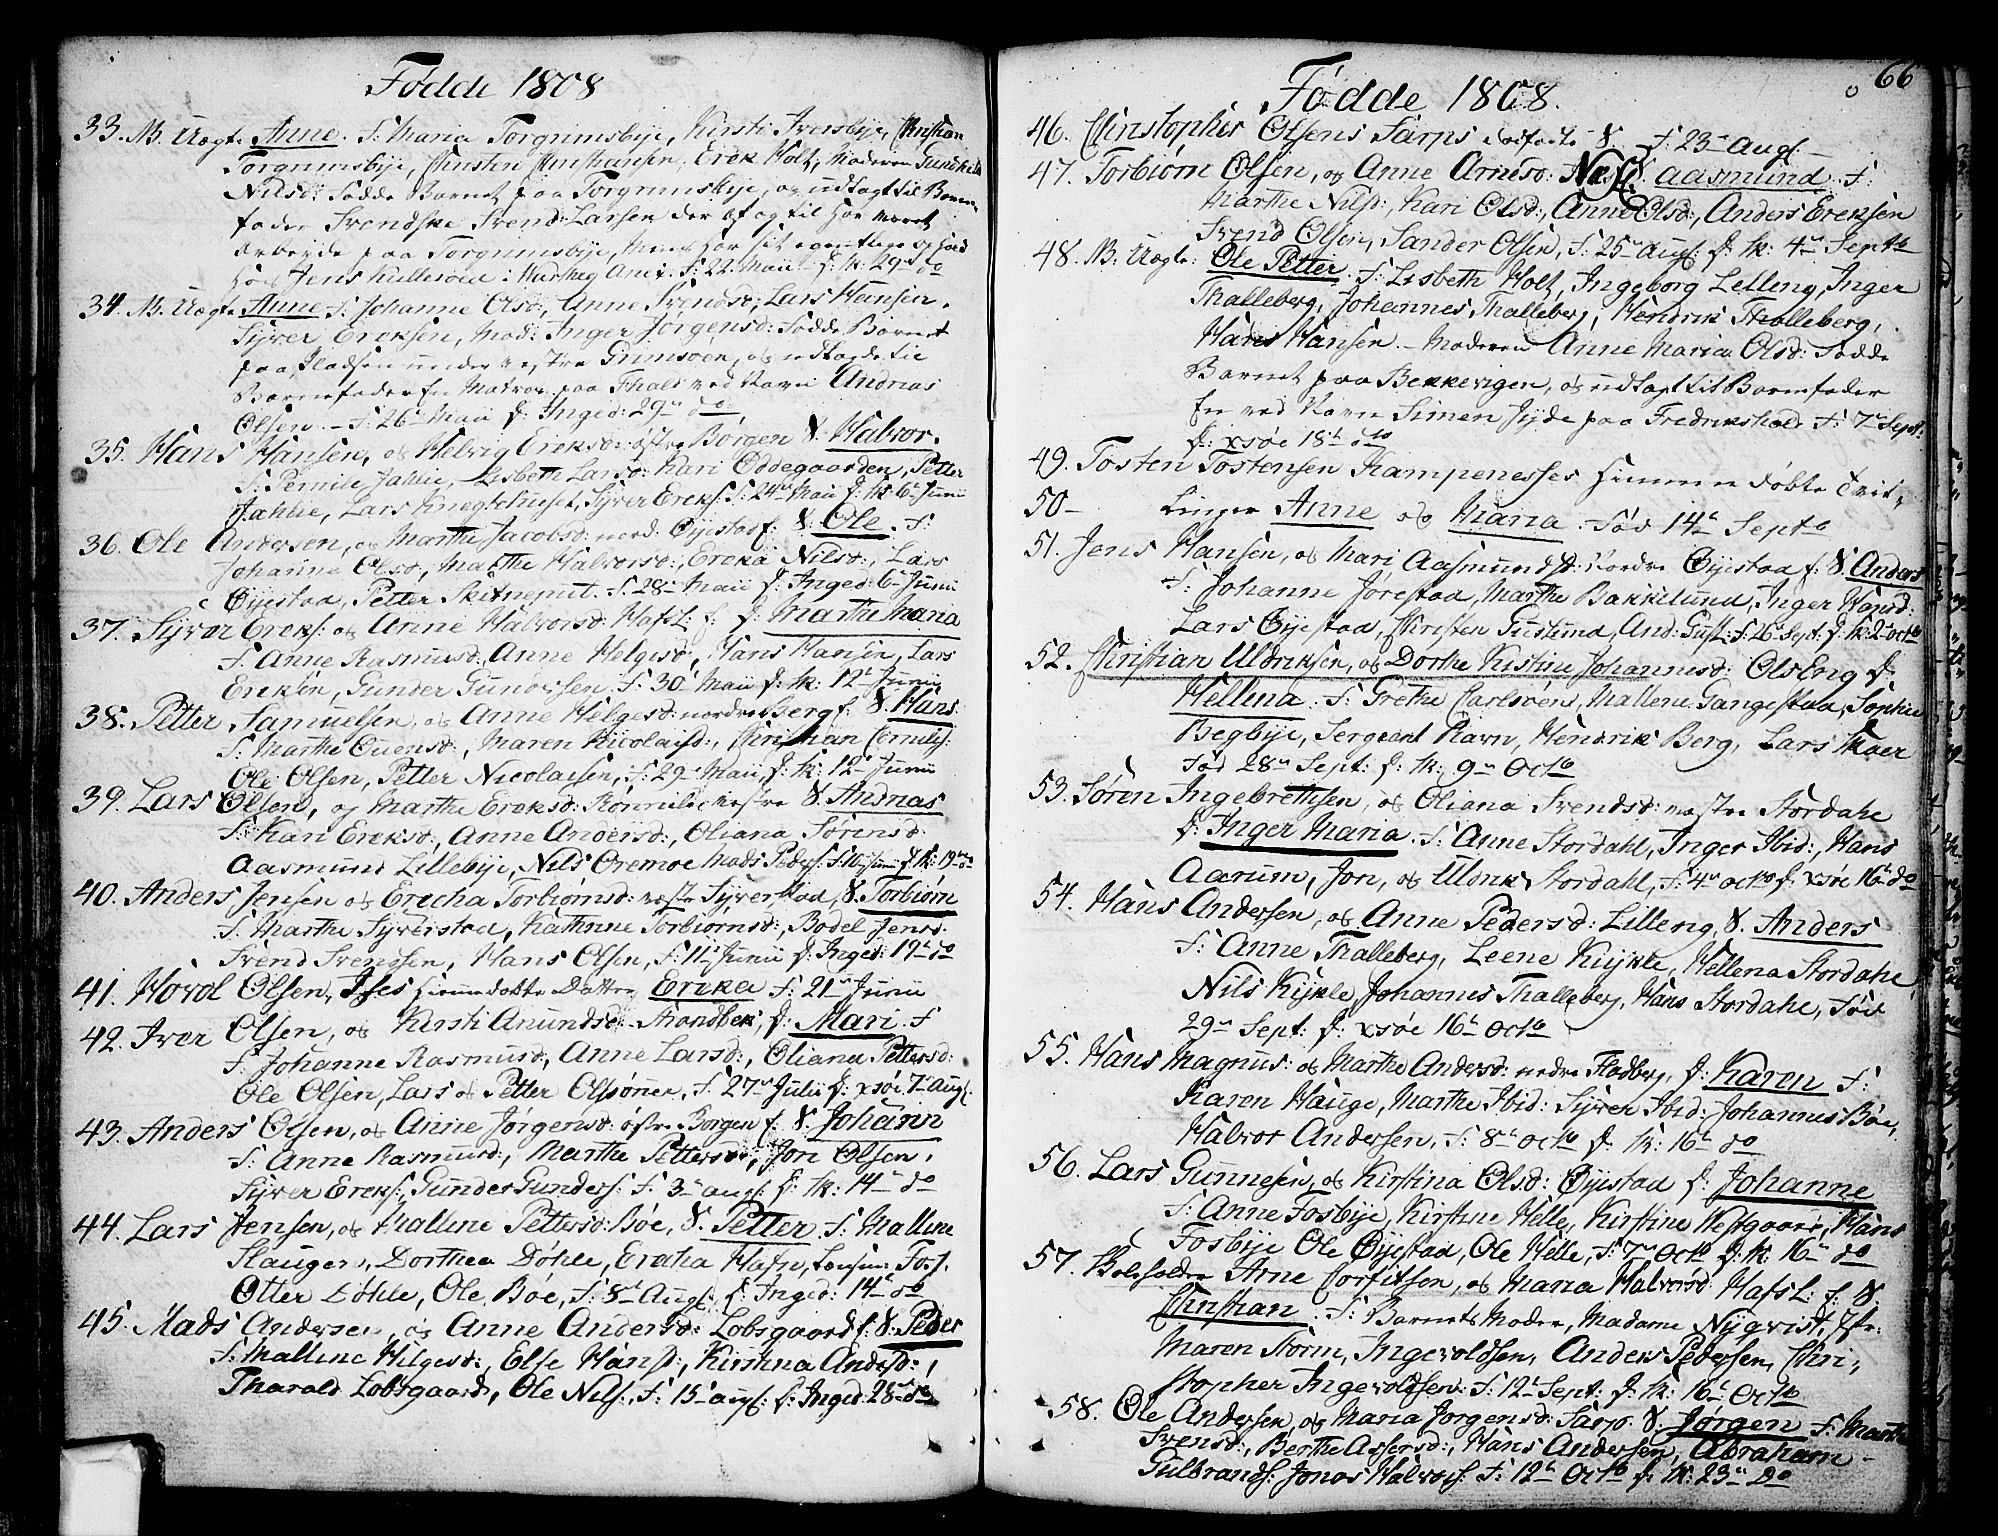 Fødde 1808
33. N. Uægte Anne. F: Maria Torgrimsbye, Kirsti Iversbye, Christian
Torgrimsbye, Christen Christiansen, Erek Holt, Moderen Gundhild
Nilsd: Fødde Barnet paa Torgrimsbye, og udlagt til Barne-
fader Svendske Svend Larsen der af og til har været
arbeyde paa Torgrimsbye, Men har sit egentlige ophold
hos Jens Kullerød i Warberg Amt. F: 22 Maii d: K: 29 do
34. N. Uægte Anne F: Johanne Olsd:, Anne Svendsd:, Lars Hansen,
Syver Ereksen, Mod: Inger Jørgensd: Fødde Barnet
paa Pladsen under vestre Grimsøen, og udlagde til
Barnefader En Matros paa Thals ved Navn Andreas
Olsen. F: 26 Maii d: Inged: 29 do
35. Hans Hansen, og Helvig Ereksd: østre Børgen 8. Halvor.
F: Pernile Jahlie, Lisbeth Larsd: Kari Oddegaarden, Petter
Jahlie, Lars Knegtehuset, Syver Ereks: F: 24 Maii d: K: 6 Junii
36. Ole Andersen, og Marthe Jacobsd: nord: Øyestad f: 8. Ole. F:
Johanne Olsd:, Marthe Halvorsd:, Ereka Nilsd:, Lars
Øyestad, Petter Skitneput. F: 28 Maii d: Inged: 6 Junii
37. Syver Ereks: og Anne Halvorsd: Hafsl: f: d: Marthe Maria
F: Anne Rasmusd:, Anne Helgesd:, Hans Hansen, Lars
Ereksen, Gunder Gundersen F: 30 Maii d: K: 12 Junii
38. Petter Samuelsen, og Anne Helgesd: nordre Berg f: 8. Hans
F: Marthe Ouensd:, Maren Nicolaisd:, Christian Cornelis:
Ole Olsen, Petter Nicolaisen, F: 29 Maii, d: K: 12 Junii
39. Lars Olsen, og Marthe Ereksd: Rønnile vestre 8. Andreas
F: Kari Ereksd:, Anne Andersd:, Oliana Sørensd:
Aasmund Lillebye, Nils Oremoe Mads Peders: F: 10 Junii d: K: 19 do
40. Anders Jensen og Erecha Torbiørnsd: vestr: Syverstad, 8. Torbiørn
F: Marthe Syverstad, Kathrine Torbiørnsd:, Bodel Jensd:
Svend Svendsen, Hans Olsen, F: 11 Junii d: Inged: 19 do
41. Hovol Olsen, Ises hiemmedøbte Datter Ereka F: 21 Junii
42. Iver Olsen, og Kirsti Anundsd: Strandbek, d: Mari. F
F: Johanne Rasmusd:, Anne Larsd:, Oliana Pettersd:
Ole Olsen, Lars og Petter Olsønner, F: 27 Julii d: xsøe 7 Aug:
43. Anders Olsen, og Anne Jørgensd: østre Borgen f. 8. Johann
F: Anne Rasmusd:, Marthe Pettersd:, Jon Olsen,
Syver Ereks:, Gunder Gunders: F: 3 aug: d: K: 14 do
44. Lars Jensen, og Mallene Pettersd: Bøe, 8. Petter F: Mallene
Hauger, Dorthea Døhle, Erecha Hafn, Fosf.
Otter Døhle, Ole Bøe, F: 8 Aug: d: Inged: 14 do
45. Mads Andersen og Anne Andersd: Lobsgaard f: 8. Peder
F: Mallene Helgesd:, Else Hansd:, Kirstina Andersd:,
Tharald Lobsgaard, Ole Nils: F: 15 aug: d: Inged: 28 do
66
Fødde 1808.
46. Christopher Olsens Sarps dødfødte 8 F: 23 Aug:
47. Torbiørn Olsen, og Anne Arnesd: 8. Aasmund F:
Marthe Nilsd:, Kari Olsd:, Anne Olsd:, Anders Ereksen
Svend Olsen, Sander Olsen, F: 25 Aug: d: K: 4 Septo
48. N. Uægte: Ole Petter. F: Lisbeth Holt, Ingeborg Lelleng, Inger
Thalleberg, Johannes Thalleberg, Hendrik Thalleberg,
Hans Hansen. Moderen Anne Maria Olsd: Fødde
Barnet paa Bekkevigen, og udlagt til Barnefader
En ved Navn Simen Jyde paa Fredrikshald F: 7 Sept:
d: xsøe 18 do
49. Tosten Tostensen Kampenesses hiemmedøbte Tvil-
50- linger Anne og Maria. Fød 14 Septo
51. Jens Hansen, og Mari Aasmundsd: Nordre Øyestad f: 8. Anders
F: Johanne Jørestad, Marthe Bakkelund, Inger Hansd:
Lars Øyestad, Christen Guslund, And: Gusl: F: 26 Sept: d: K: 2 octo
52. Christian Uldriksen, og Dorthe Kistine Johannsd: Olsborg d:
Hellena. F: Grethe Carlsøens, Mallene Tangestad, Sophie
Begbye, Sergeant Ravn, Hendrik Berg, Lars Skaer
Fød 28 Sept: d: K: 9 Octo
53. Søren Ingebrethsen, og Oliana Svendsd: nestre Stordahl
d: Inger Maria. F: Anne Stordahl, Inger Ibid:, Hans
Aarum, Jon, og Ulrik Stordahl, F: 4 octo d: xsøe 16 do
54. Hans Andersen, og Anne Pedersd: Lilleng, 8. Anders
F: Anne Thalleberg, Leene Kykle, Hellena Stordahl
Nils Kykle, Johannes Thalleberg, Hans Stordahl, Fød
29 Sept: d: xsøe 16 Octo
55. Hans Magnus: og Marthe Andersd: nedre Fladberg, d: Karen F:
Karen Hauge, Marthe Ibid: Syver Ibid: Johannes Bøe,
Halvor Andersen, F: 8 octo d: K: 16 do
56. Lars Gunnesen, og Kirstina Olsd: Øyestad d: Johanne
F: Anne Fosbye, Kirstine Helle, Kirstine Westgaard, Hans
Fosbye Ole Øyestad, Ole Helle, F: 7 Octo d: K: 16 do
57. Boleholder Arne Corfitsen, og Maria Halvorsd: Hafsl: f: 8
Christian. F: Barnets Moder, Madame Nyqvist, Jfr:
Maren Storm, Ingevoldsen, Anders Pedersen, Chri-
stopher Ingevoldsen: F: 12 Sept: d: K: 16 Octo
58. Ole Andersen, og Maria Jørgensd: Sarp. 8. Jørgen F: Marthe
Svensd:, Berthe Assersd:, Hans Andersen, Abraham
Gulbrands: Jonas Halvors: F: 12 Octo d: K: 23 Do